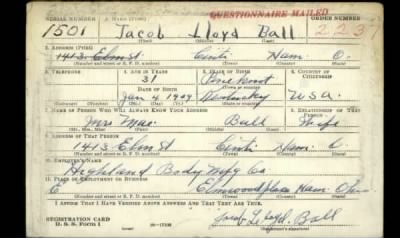 SERIAL NUMBER 1. NAME (Print) ORDER NUMBER
QUESTIONNAIRE MAILED
1501 Jacob Lloyd Ball 223
(First) (Middle) (Last)
2. ADDRESS (Print)
1413 Elm St. Cinti Ham. O.
(Number and street or R. F. D. number) (Town) (County) (State)
3. TELEPHONE 4. AGE IN YEARS 5. PLACE OF BIRTH 6. COUNTRY OF CITIZENSHIP
31
DATE OF BIRTH (Town or county)
Jan 4 1909 Kentucky U.S.A.
(Exchange) (No.) (Mo.) (Day) (Yr.) (State or country)
7. NAME OF PERSON WHO WILL ALWAYS KNOW YOUR ADDRESS 8. RELATIONSHIP OF THAT PERSON
Mrs Mae Ball Wife
(Mr., Mrs., Miss) (First) (Middle) (Last)
9. ADDRESS OF THAT PERSON
1413 Elm St Cinti Ham. O.
(Number and street or R. F. D. number) (Town) (County) (State)
10. EMPLOYER'S NAME
Highland Body Mfg Co
11. PLACE OF EMPLOYMENT OR BUSINESS
E Elmwood place Ham. Ohio
(Number and street or R. F. D. number) (Town) (County) (State)
I AFFIRM THAT I HAVE VERIFIED ABOVE ANSWERS AND THAT THEY ARE TRUE.
REGISTRATION CARD
D. S. S. Form 1
Jacob Lloyd Ball
(Registrant's signature)